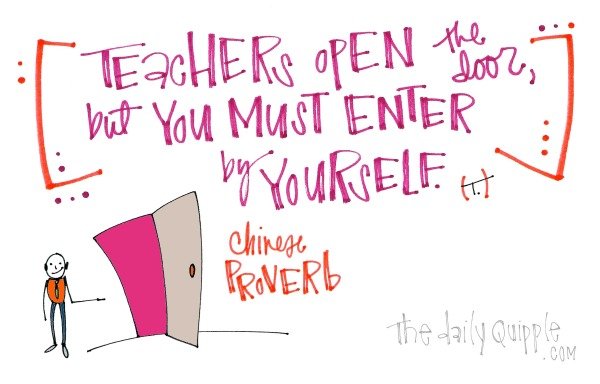 TEACHERS OPEN the door,
but YOU MUST ENTER
by YOURSELF. (T.)
Chinese
PROVERB
The daily Quipple
.COM